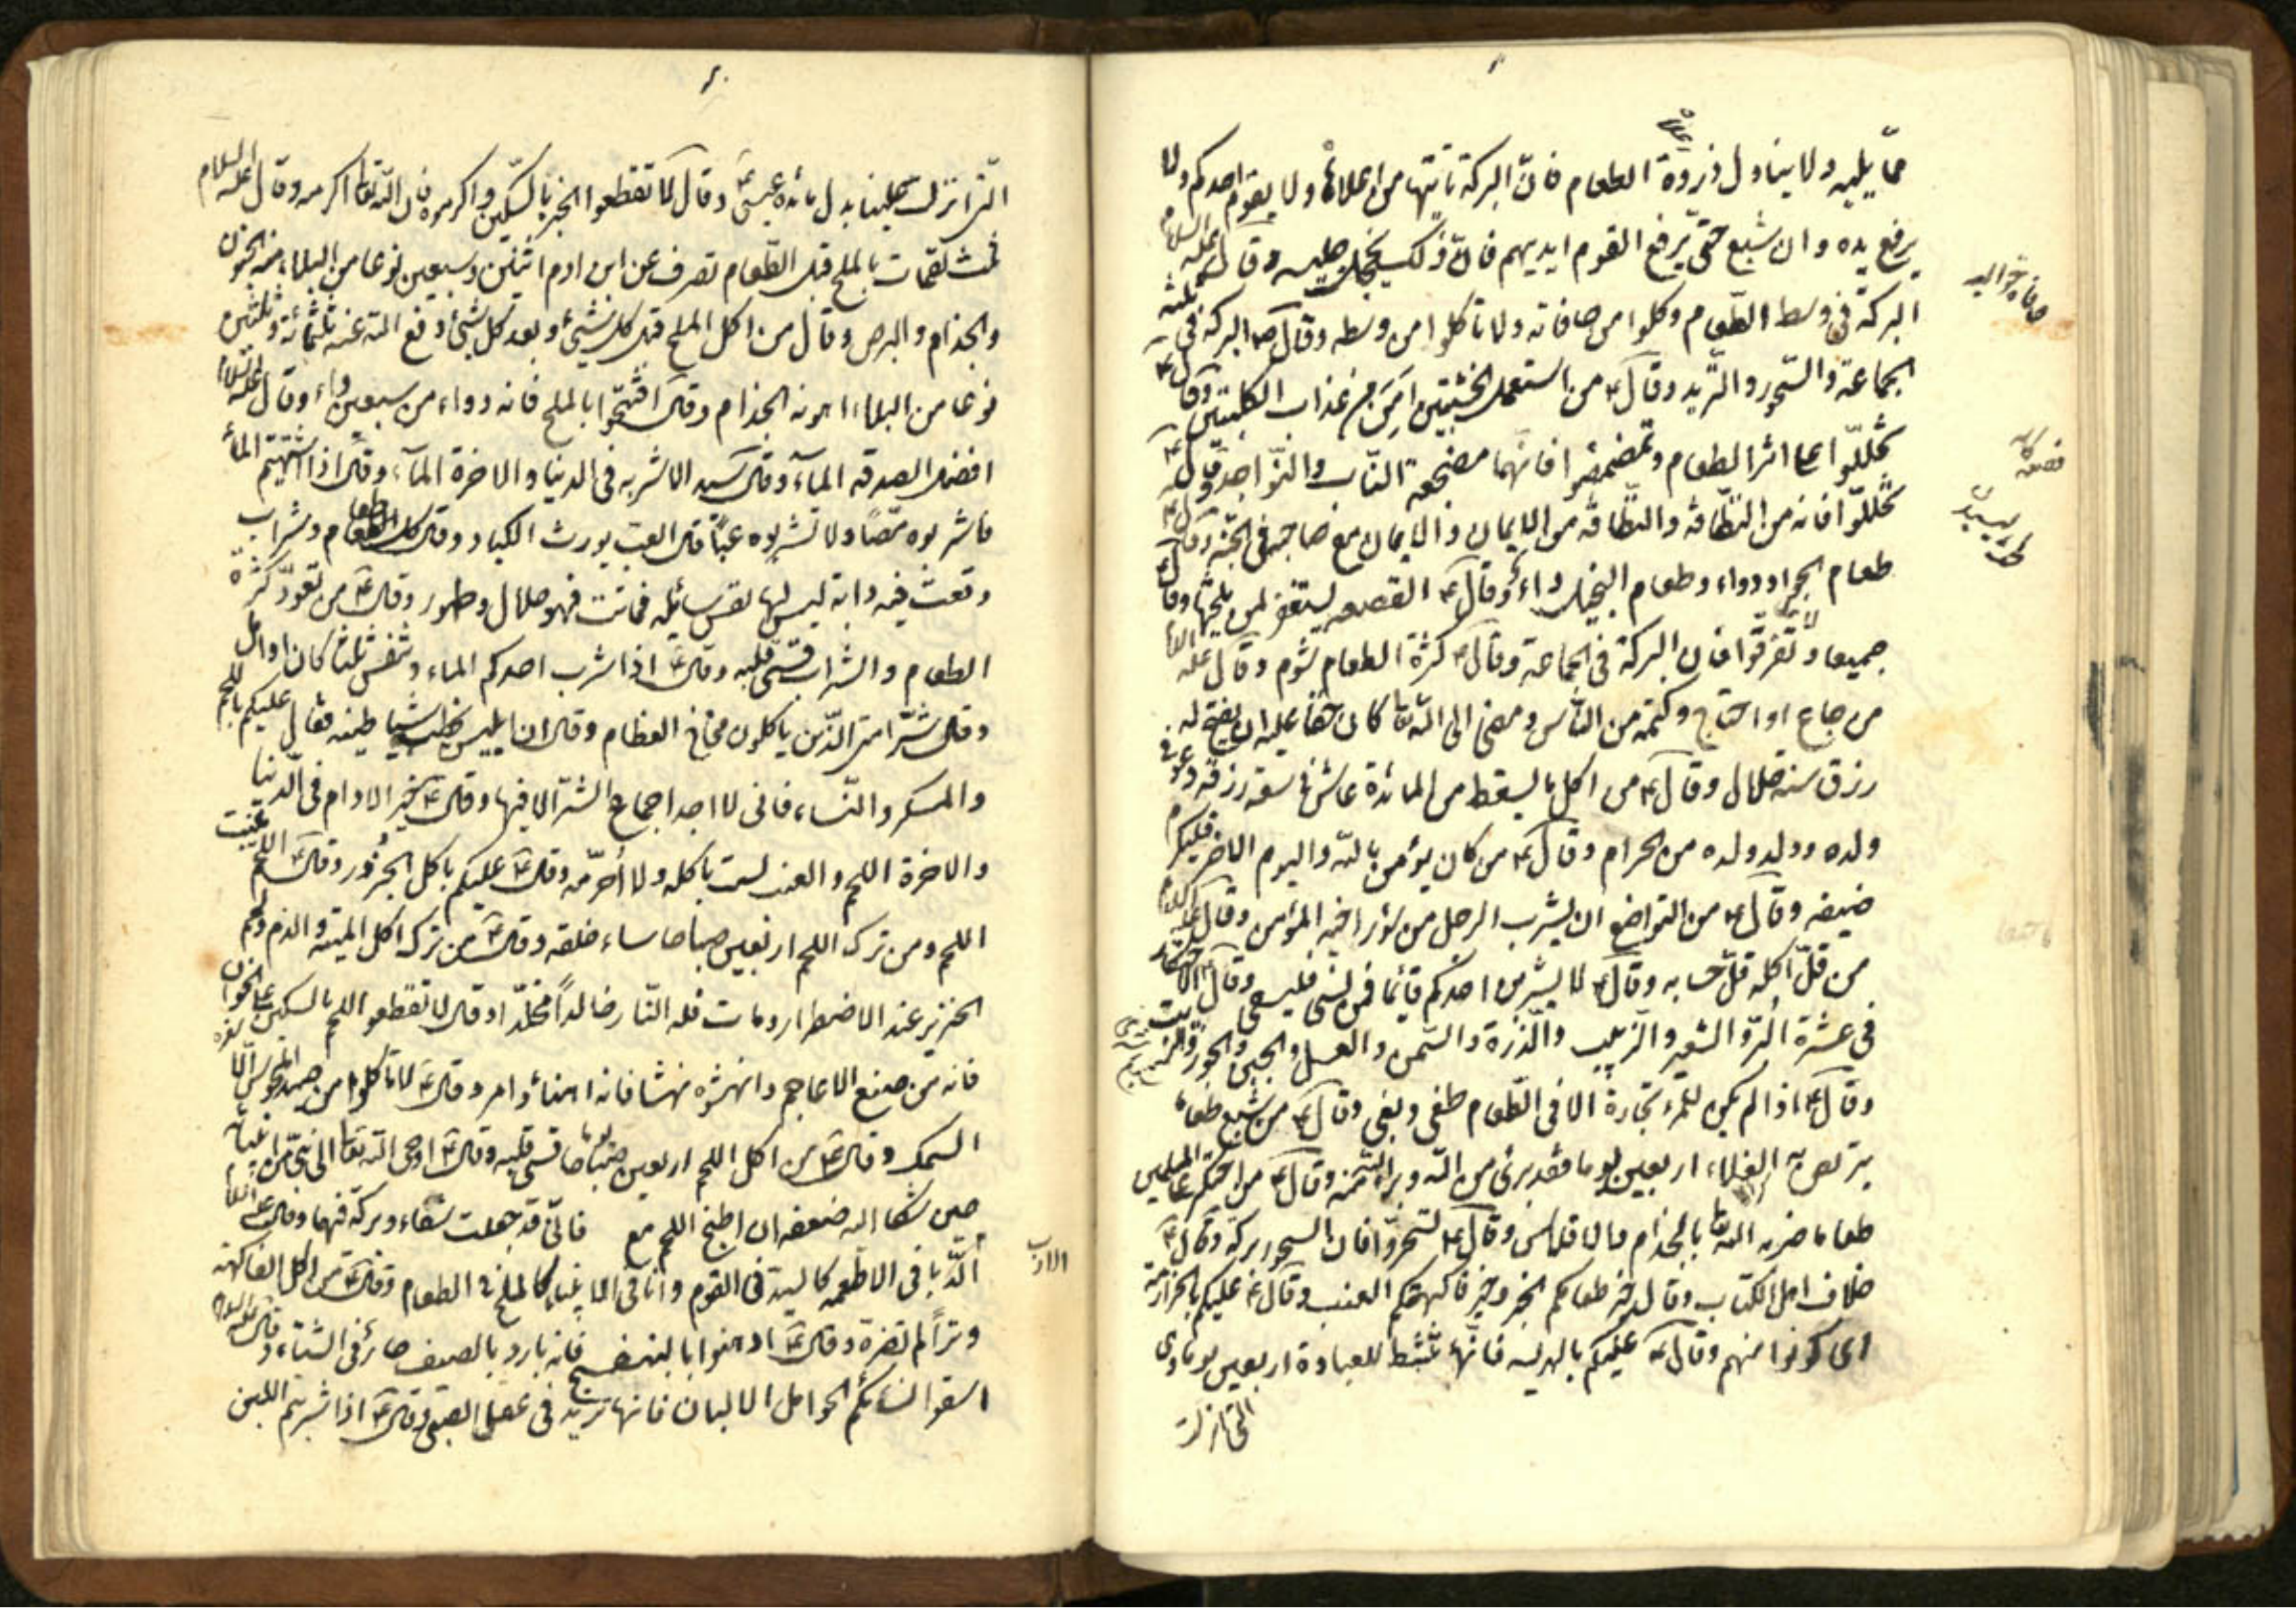 مما يليه ولا يتناول ذروة الطعام فان البركة تاتيها من اعلاها ولا يقوم احدكم ولا
يرفع يده وان شبع حتى يرفع القوم ايديهم فان ذلك يخجل جليسه وقال عليه السلام
البركة فى وسط الطعام وكلوا من حافاته ولا تاكلوا من وسطه وقال البركة فى ثلثة
الجماعة والسحور والثريد وقال من استعمل الخشبتين امن من عذاب الكلبتين وقال
تخللوا على اثر الطعام وتمضمضوا فانهما مصححة الناب والنواجد وقال
تخللوا فانه من النظافة والنظافة من الايمان والايمان مع صاحبه فى الجنة وقال
طعام الجواد دواء وطعام البخيل داء وقال القصعة يستغفر لمن يلحسها وقال كلوا
جميعا ولا تفرقوا فان البركة فى الجماعة وقال كثرة الطعام شوم وقال عليه السلام
من جاع او احتاج وكتمه من الناس ومضى الى الله تعا كان حقا عليه ان يفتح له
رزق سنة حلال وقال من اكل ما يسقط من المائدة عاش فى سعة رزقه وعوفى
ولده وولد ولده من الحرام وقال من كان يؤمن بالله واليوم الاخر فليكرم
ضيفه وقال من التواضع ان يشرب الرجل من سؤر اخيه المؤمن وقال عليه السلام
من قل اكله قل حسابه وقال لا يشربن احدكم قائما فمن نسى فليستقى وقال الاحتكار
فى عشرة البر والشعير والزبيب والذرة والسمن والعسل والجبن والجوز والزيت
وقال اذا لم يكن للمرء تجارة الا فى الطعام طغى وبغى وقال من جمع طعاما
يتربص به الغلاء اربعين يوما فقد برئ من الله وبرئ الله منه وقال من احتكر على المسلمين
طعاما ضربه الله تعا بالجذام والافلاس وقال تسحروا فان السحور بركة وقال
خلاف اهل الكتاب وقال خير طعامكم الخبز وخير فاكهتكم العنب وقال عليكم بالحزامة
اى كونوا منهم وقال عليكم بالهريسة فانها تنشط للعبادة اربعين يوما وهى
التى نزلت
قصعه كاسه
التى انزلت علينا بدل مائدة عيسى وقال لا تقطعوا الخبز بالسكين واكرموه فان الله تعا اكرمه وقال عليه السلام
ثلث لقمات بالملح قبل الطعام تصرف عن ابن ادم اثنين وسبعين نوعا من البلاء منه الجنون
والجذام والبرص وقال من اكل الملح قبل كل شئ وبعد كل شئ دفع الله عنه ثلثمائة وثلثين
نوعا من البلاء اهونه الجذام وقال افتتحوا بالملح فانه دواء من سبعين داء وقال عليه السلام
افضل الصدقة الماء وقال سيد الاشربة فى الدنيا والاخرة الماء وقال اذا اشتهيتم الماء
فاشربوه مصا ولا تشربوه عبا قال العب يورث الكباد وقال كل طعام وشراب
وقعت فيه دابة ليس لها نفس سائلة فماتت فهو حلال وطهور وقال من تعود كثرة
الطعام والشراب قسى قلبه وقال اذا شرب احدكم الماء وتنفس ثلثا كان
وقال شر امتى الذين ياكلون مخاخ العظام وقال ان ابليس يخطب شياطينه فقال عليكم باللحم
والمسكر والنساء فانى لا اجد اجماع الشر الا فيها وقال خير الادام فى الدنيا
والاخرة اللحم والعنب لست باكله ولا احرمه وقال عليكم باكل الجزور وقال اللحم
اللحم ومن ترك اللحم اربعين صباحا ساء خلقه وقال من ترك اكل الميتة والدم ولحم
الخنزير عند الاضطرار ومات فله النار خالدا مخلدا وقال لا تقطعوا اللحم بالسكين على الخوان
فانه من صنع الاعاجم وانهشوه نهشا فانه اهنأ وامرء وقال لا تاكلوا من صيد المجوس الا
السمك وقال من اكل اللحم اربعين صباحا قسى قلبه وقال اوحى الله تعا الى نبى من انبيائه
حين شكا اليه ضعفه ان اطبخ اللحم مع فانى قد جعلت شفاء وبركة فيها وقال عليه السلام
الدبا فى الاطعمة كالسيد فى القوم وانا فى الانبياء كالملح فى الطعام وقال من اكل الفاكهة
وترا لم تضره وقال ادهنوا بالبنفسج فانه بارد بالصيف حار فى الشتاء وقال عليه السلام
اسقوا نسائكم الحوامل الالبان فانها تزيد فى عقل الصبى وقال اذا شربتم اللبن